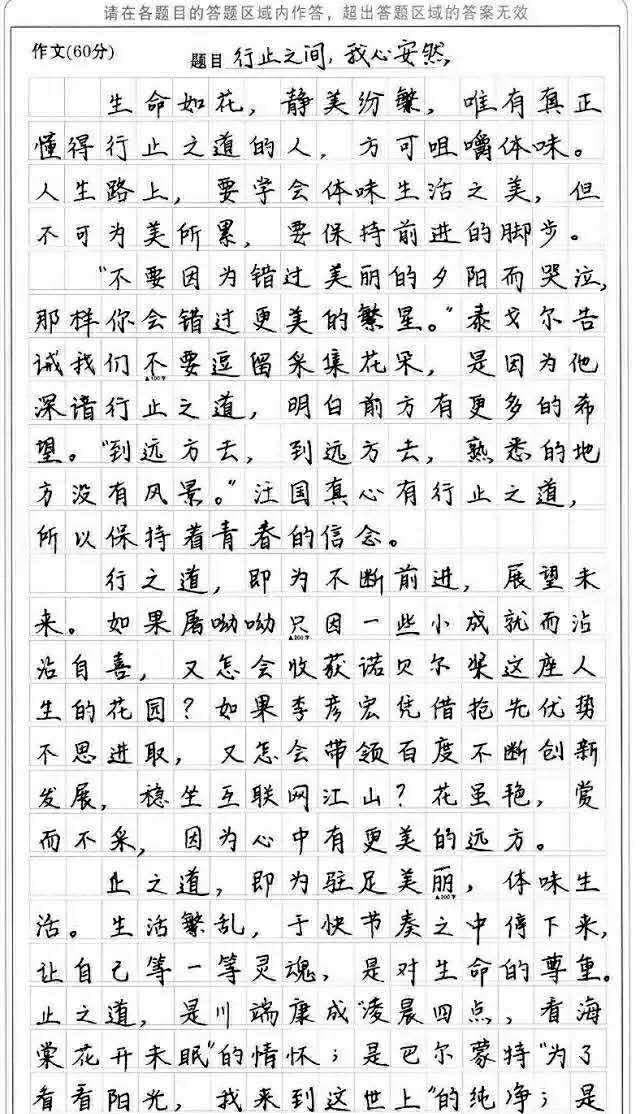 请在各题目的答题区域内作答，超出答题区域的答案无效
作文(60分) 题目 行止之间，我心安然
生命如花，静美纷繁，唯有真正
懂得行止之道的人，方可咀嚼体味。
人生路上，要学会体味生活之美，但
不可为美所累，要保持前进的脚步。
“不要因为错过美丽的夕阳而哭泣，
那样你会错过更美的繁星。”泰戈尔告
诫我们不要逗留采集花朵，是因为他
▲100字
深谙行止之道，明白前方有更多的希
望。“到远方去，到远方去，熟悉的地
方没有风景。”汪国真心有行止之道，
所以保持着青春的信念。
行之道，即为不断前进，展望未
来。如果屠呦呦只因一些小成就而沾
▲200字
沾自喜，又怎会收获诺贝尔奖这座人
生的花园？如果李彦宏凭借抢先优势
不思进取，又怎会带领百度不断创新
发展，稳坐互联网江山？花虽艳，赏
而不采，因为心中有更美的远方。
止之道，即为驻足美丽，体味生
▲300字
活。生活繁乱，于快节奏之中停下来，
让自己等一等灵魂，是对生命的尊重。
止之道，是川端康成“凌晨四点，看海
棠花开未眠”的情怀；是巴尔蒙特“为了
看看阳光，我来到这世上”的纯净；是